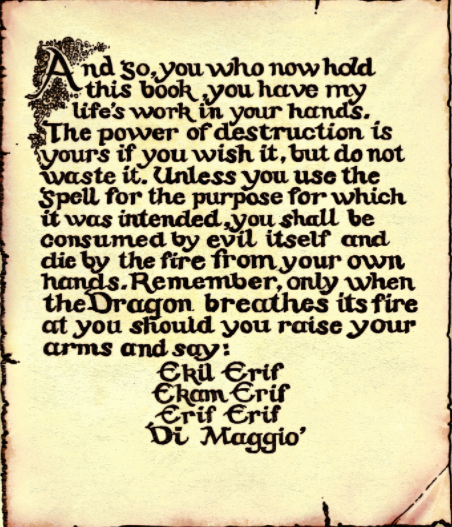 And so, you who now hold
this book, you have my
life's work in your hands.
The power of destruction is
yours if you wish it, but do not
waste it. Unless you use the
spell for the purpose for which
it was intended, you shall be
consumed by evil itself and
die by the fire from your own
hands. Remember, only when
the Dragon breathes its fire
at you should you raise your
arms and say:
Ekil Erif
Ekam Erif
Erif Erif
Di Maggio'